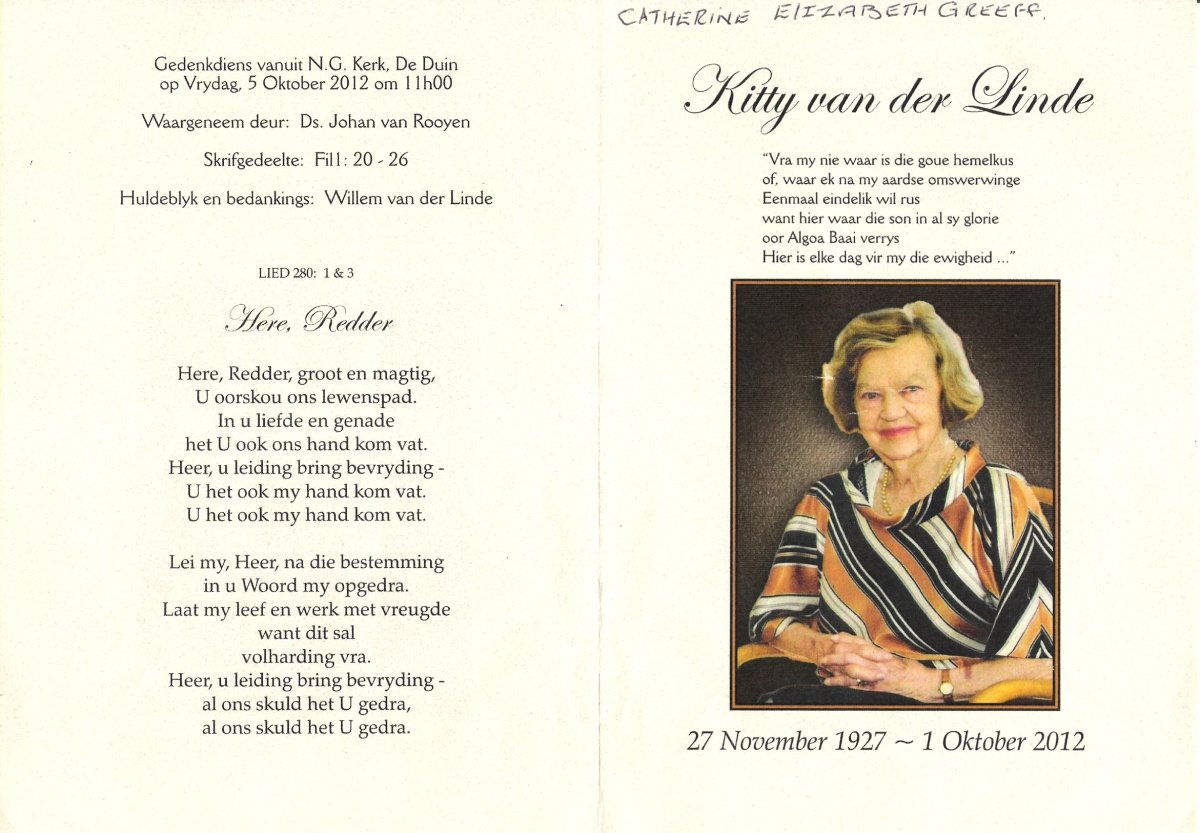 Gedenkdiens vanuit N.G. Kerk, De Duin
op Vrydag, 5 Oktober 2012 om 11h00
Waargeneem deur: Ds. Johan van Rooyen
Skrifgedeelte: Fil1: 20 - 26
Huldeblyk en bedankings: Willem van der Linde
LIED 280: 1 & 3
Here, Redder
Here, Redder, groot en magtig,
U oorskou ons lewenspad.
In u liefde en genade
het U ook ons hand kom vat.
Heer, u leiding bring bevryding -
U het ook my hand kom vat.
U het ook my hand kom vat.
Lei my, Heer, na die bestemming
in u Woord my opgedra.
Laat my leef en werk met vreugde
want dit sal
volharding vra.
Heer, u leiding bring bevryding -
al ons skuld het U gedra,
al ons skuld het U gedra.
CATHERINE ELIZABETH GREEFF.
Kitty van der Linde
“Vra my nie waar is die goue hemelkus
of, waar ek na my aardse omswerwinge
Eenmaal eindelik wil rus
want hier waar die son in al sy glorie
oor Algoa Baai verrys
Hier is elke dag vir my die ewigheid ...”
27 November 1927 ~ 1 Oktober 2012